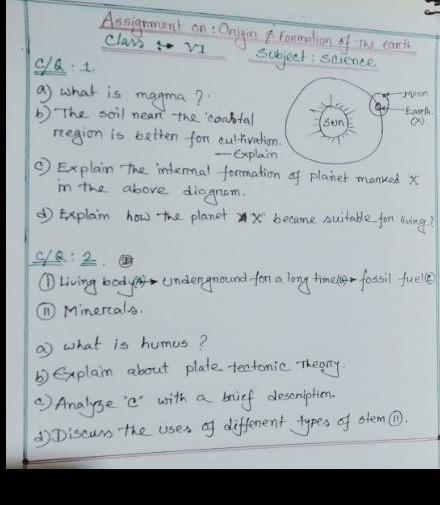 Assignment on : Origin & Formation of the earth
Class :→ VI Subject : Science
C/Q : 1.
a) What is magma ?
b) The soil near the 'coastal region is better for cultivation.
— Explain
Sun
Moon
Earth
(X)
c) Explain the internal formation of planet marked 'X'
in the above diagram.
d) Explain how the planet "X" became suitable for living.?
C/Q : 2.
(I) Living body(A) → underground for a long time(B) → fossil fuel(C)
(II) Minerals.
a) What is humus ?
b) Explain about plate tectonic Theory.
c) Analyze "C" with a brief description.
d) Discuss the uses of different types of stem (II).